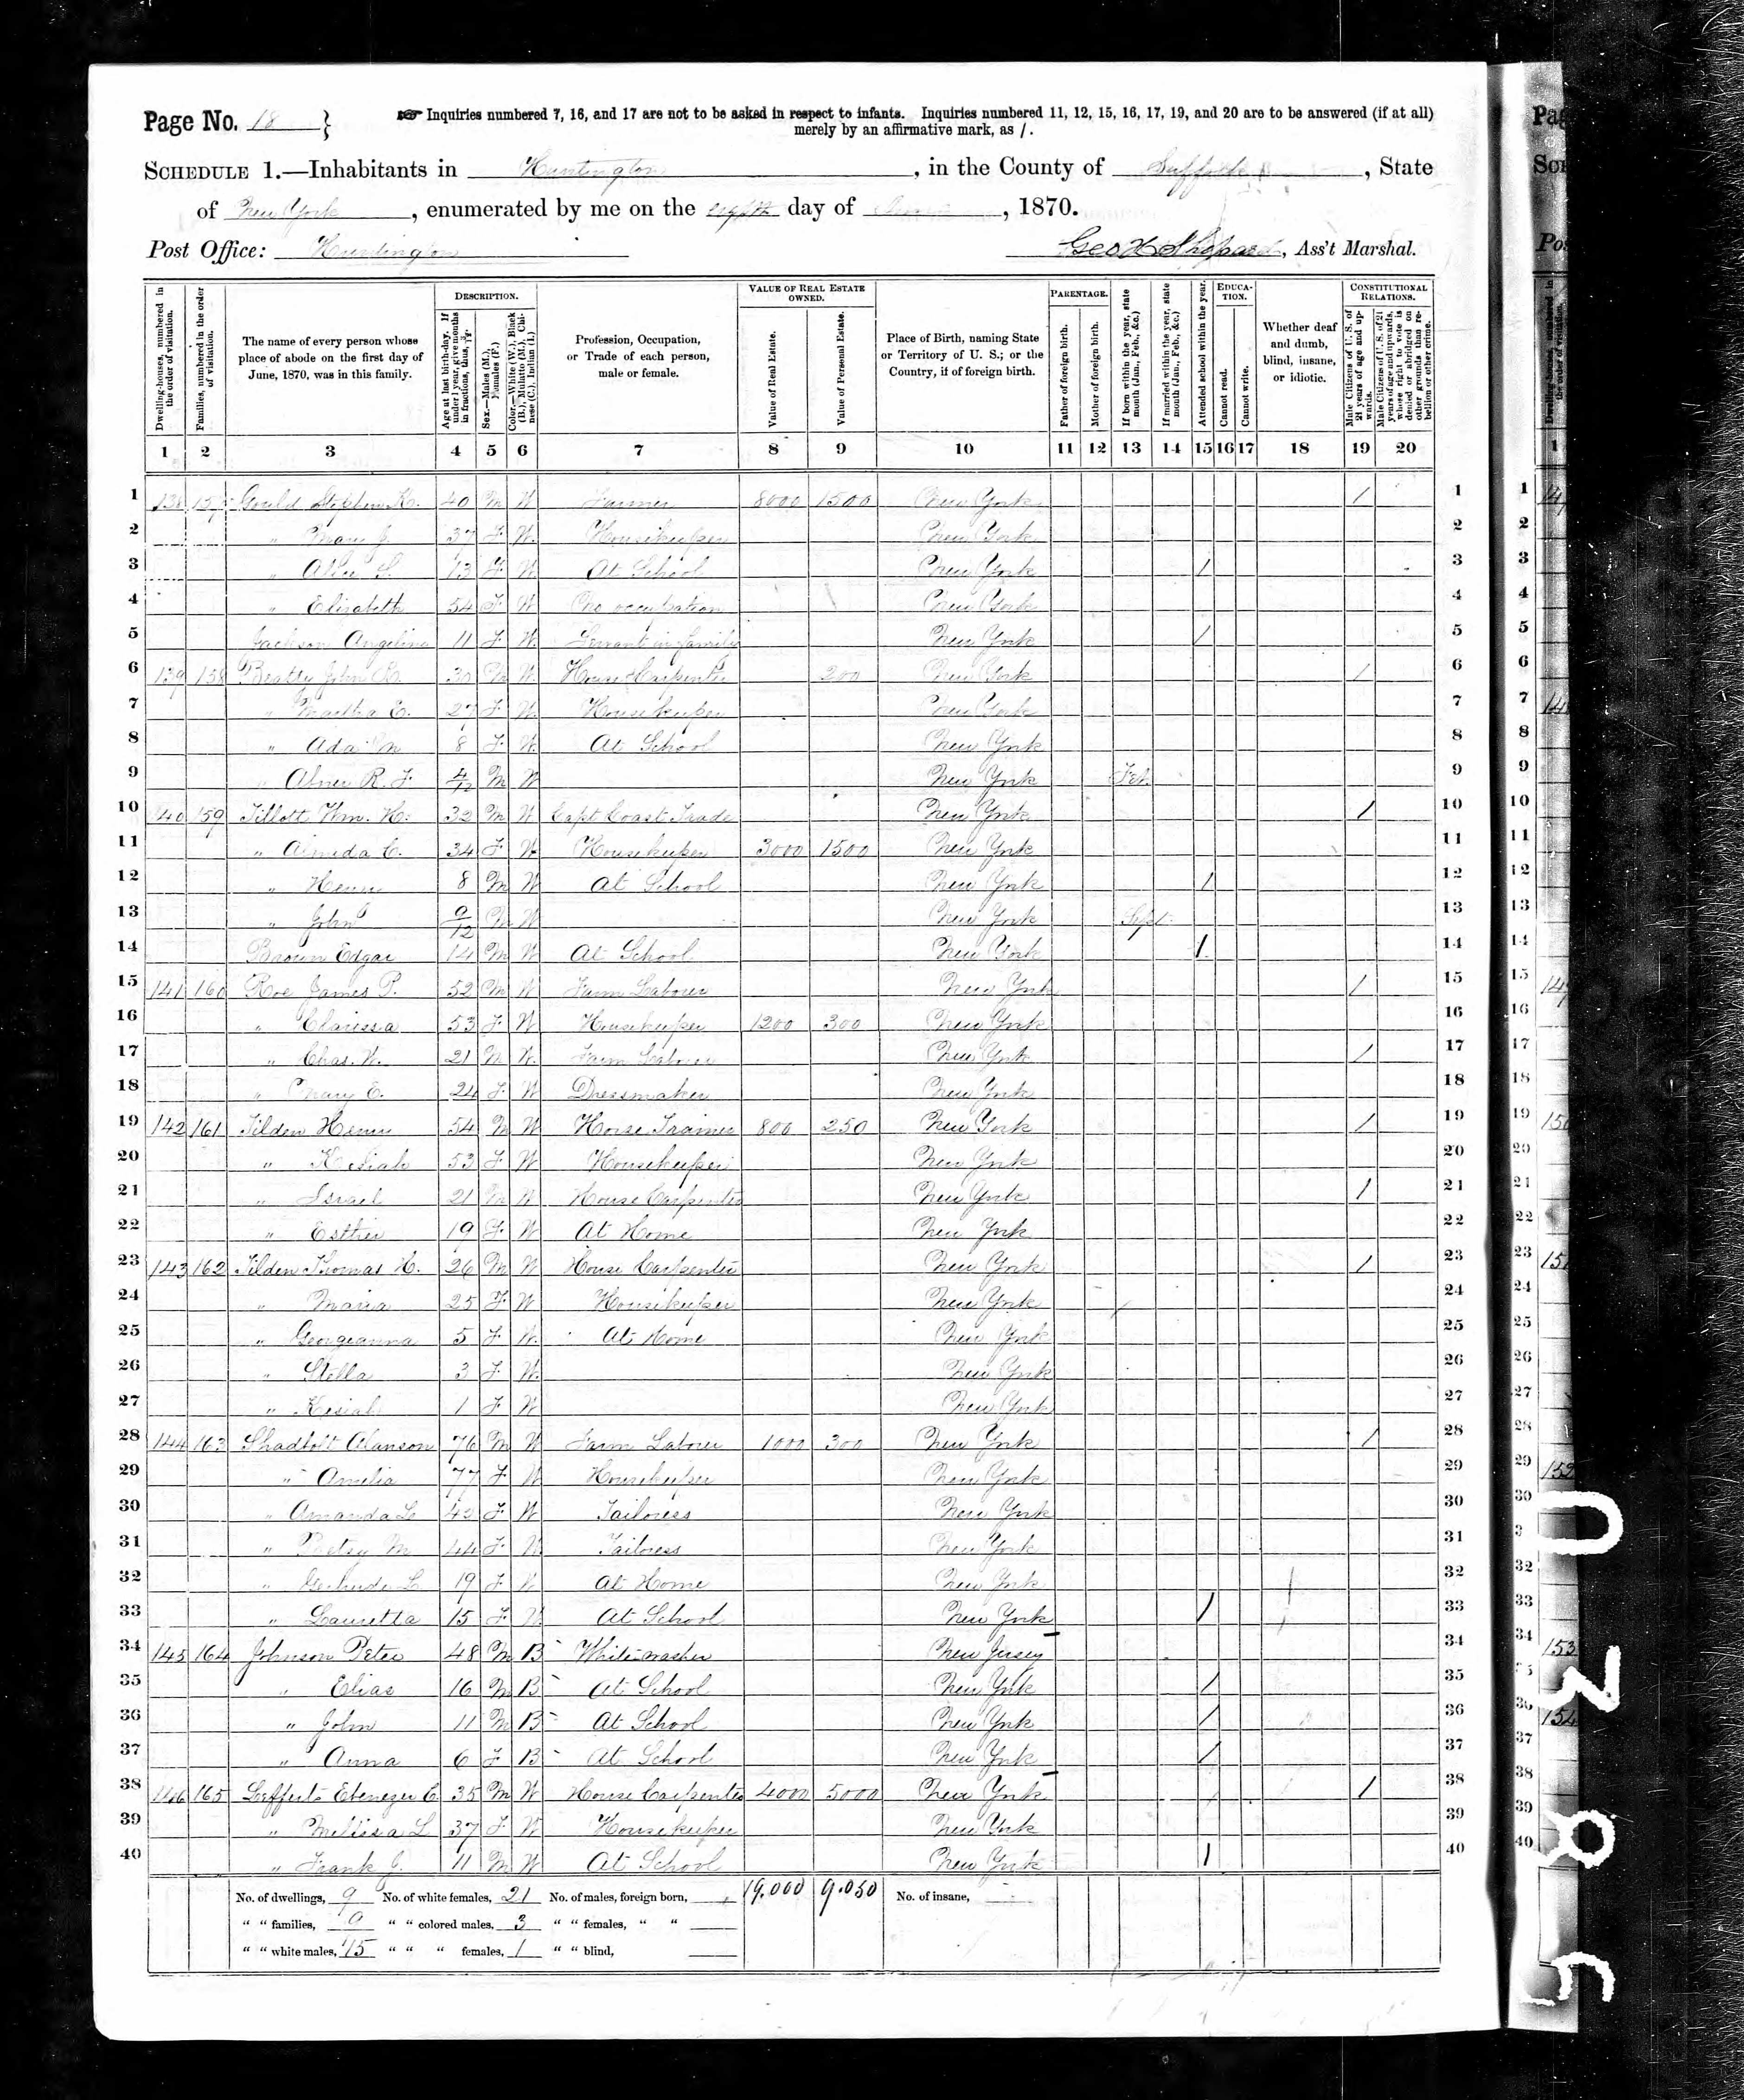 Page No. 18 }
☞ Inquiries numbered 7, 16, and 17 are not to be asked in respect to infants. Inquiries numbered 11, 12, 15, 16, 17, 19, and 20 are to be answered (if at all)
merely by an affirmative mark, as /.
SCHEDULE 1.—Inhabitants in Huntington, in the County of Suffolk, State
of New York, enumerated by me on the eighth day of June, 1870.
Post Office: Huntington Geo H Shepard, Ass't Marshal.
Dwelling-houses, numbered in the order of visitation.
Families, numbered in the order of visitation.
The name of every person whose place of abode on the first day of June, 1870, was in this family.
DESCRIPTION.
Age at last birth-day. If under 1 year, give months in fractions, thus, 3/12.
Sex.—Males (M.), Females (F.)
Color.—White (W.), Black (B.), Mulatto (M.), Chinese (C.), Indian (I.)
Profession, Occupation, or Trade of each person, male or female.
VALUE OF REAL ESTATE OWNED.
Value of Real Estate.
Value of Personal Estate.
Place of Birth, naming State or Territory of U. S.; or the Country, if of foreign birth.
PARENTAGE.
Father of foreign birth.
Mother of foreign birth.
If born within the year, state month (Jan., Feb., &c.)
If married within the year, state month (Jan., Feb., &c.)
Attended school within the year.
EDUCATION.
Cannot read.
Cannot write.
Whether deaf and dumb, blind, insane, or idiotic.
CONSTITUTIONAL RELATIONS.
Male Citizens of U. S. of 21 years of age and upwards.
Male Citizens of U. S. of 21 years of age and upwards, whose right to vote is denied or abridged on other grounds than rebellion or other crime.
1 2 3 4 5 6 7 8 9 10 11 12 13 14 15 16 17 18 19 20
1 138 157 Gould Stephen K. 40 M W Farmer 8000 1500 New York / 1
2 " Mary J. 37 F W Housekeeper New York 2
3 " Alice S. 13 F W At School New York / 3
4 " Elizabeth 54 F W No occupation New York 4
5 Jackson Angelina 11 F W Servant in family New York / 5
6 139 158 Beatty John R. 30 M W House Carpenter 200 New York / 6
7 " Martha E. 27 F W Housekeeper New York 7
8 " Ada M 8 F W At School New York 8
9 " Abner R. F. 4/12 M W New York Feb. 9
10 140 159 Tillott Wm. H. 32 M W Capt Coast Trade New York / 10
11 " Almeda C. 34 F W Housekeeper 3000 1500 New York 11
12 " Henry 8 M W At School New York / 12
13 " John 9/12 M W New York Sept. 13
14 Brown Edgar 14 M W At School New York / 14
15 141 160 Roe James P. 52 M W Farm Laborer New York / 15
16 " Clarissa 53 F W Housekeeper 1200 300 New York 16
17 " Chas. W. 21 M W Farm Laborer New York / 17
18 " Mary E. 24 F W Dressmaker New York 18
19 142 161 Tilden Henry 54 M W Horse Trainer 800 250 New York / 19
20 " Kesiah 53 F W Housekeeper New York 20
21 " Israel 21 M W House Carpenter New York / 21
22 " Esther 19 F W At Home New York 22
23 143 162 Tilden Thomas H. 26 M W House Carpenter New York / 23
24 " Maria 25 F W Housekeeper New York 24
25 " Georgeanna 5 F W At Home New York 25
26 " Stella 3 F W New York 26
27 " Kesiah 1 F W New York 27
28 144 163 Shadbolt Alanson 76 M W Farm Laborer 1000 300 New York / 28
29 " Amelia 77 F W Housekeeper New York 29
30 " Amanda L F W Tailoress New York 30
31 " Betsy M 44 F W Tailoress New York 31
32 " Gertrude L 19 F W At Home New York 32
33 " Lauretta 15 F W At School New York / 33
34 145 164 Johnson Peter 48 M B White-washer New Jersey 34
35 " Elias 16 M B At School New York / 35
36 " John 11 M B At School New York / 36
37 " Anna 6 F B At School New York / 37
38 146 165 Lefferts Ebenezer C. 35 M W House Carpenter 4000 5000 New York / 38
39 " Melissa L 37 F W Housekeeper New York 39
40 " Frank J. 11 M W At School New York / 40
No. of dwellings, 9 No. of white females, 21 No. of males, foreign born, 19.000 9.050 No. of insane,
" " families, 9 " " colored males, 3 " " females, " "
" " white males, 15 " " " females, 1 " " blind,